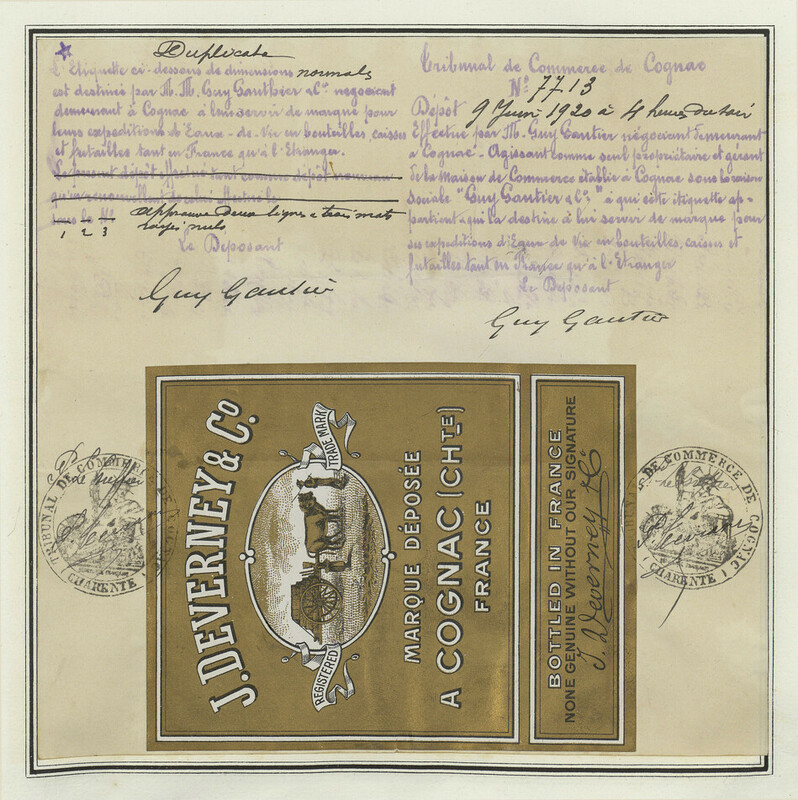 Duplicata
L'Etiquette ci-dessous de dimensions normales
est destinée par M. M. Guy Gauthier & Cº négociant
demeurant à Cognac à leur servir de marque pour
leurs expéditions d'Eaux-de-Vie en bouteilles, caisses
et futailles tant en France qu'à l'Etranger.
Le présent dépôt effectué tant comme dépôt nouveau
qu'en renouvellement de celui effectué le
sous le Nº
approuvé deux lignes et trois mots
1 2 3 rayés nuls
Le Déposant
Guy Gautier
Tribunal de Commerce de Cognac
Nº 7713
Dépôt 9 Juin 1920 à 4 heures du soir
Effectué par M. Guy Gautier négociant demeurant
à Cognac - Agissant comme seul propriétaire et gérant
de la Maison de Commerce établie à Cognac sous la raison
sociale "Guy Gautier & Cº" à qui cette étiquette ap-
partient et qui la destine à lui servir de marque pour
ses expéditions d'Eaux de Vie en bouteilles, caisses et
futailles tant en France qu'à l'Etranger
Le Déposant
Guy Gautier
J. DEVERNEY & Cº
TRADE MARK
REGISTERED
MARQUE DÉPOSÉE
A COGNAC (CHTE)
FRANCE
BOTTLED IN FRANCE
NONE GENUINE WITHOUT OUR SIGNATURE
J. Deverney & Cº
TRIBUNAL DE COMMERCE DE COGNAC
(CHARENTE)
TRIBUNAL DE COMMERCE DE COGNAC
(CHARENTE)